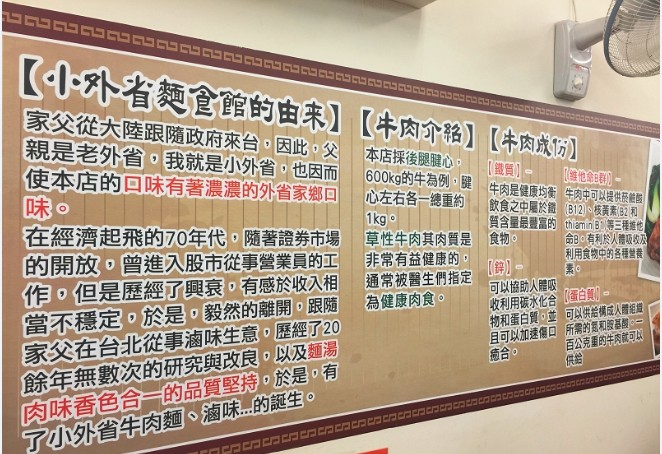 【小外省麵食館的由來】
家父從大陸跟隨政府來台，因此，父
親是老外省，我就是小外省，也因而
使本店的口味有著濃濃的外省家鄉口
味。
在經濟起飛的70年代，隨著證券市場
的開放，曾進入股市從事營業員的工
作，但是歷經了興衰，有感於收入相
當不穩定，於是，毅然的離開，跟隨
家父在台北從事滷味生意，歷經了20
餘年無數次的研究與改良，以及麵湯
肉味香色合一的品質堅持，於是，有
了小外省牛肉麵、滷味...的誕生。
【牛肉介紹】
本店採後腿腱心，
600kg的牛為例，腱
心左右各一總重約
1kg。
草性牛肉其肉質是
非常有益健康的，
通常被醫生們指定
為健康肉食。
【牛肉成份】
【鐵質】–
牛肉是健康均衡
飲食之中屬於鐵
質含量最豐富的
食物。
【鋅】–
可以協助人體吸
收利用碳水化合
物和蛋白質，並
且可以加速傷口
癒合。
【維他命B群】–
牛肉中可以提供菸鹼酸
(B12)、核黃素(B2 和
thiamin B1)等三種維他
命B，有利於人體吸收及
利用食物中的各種營養
素。
【蛋白質】–
可以供給構成人體組織
所需的氮和胺基酸，一
百公克重的牛肉就可以
供給